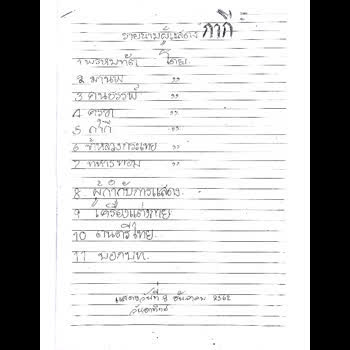 รายนามผู้แสดง กากี
1 พรหมทัต โดย.
2 มานพ ,,
3 คนธรรพ์ ,,
4 ครุฑ ,,
5 กากี ,,
6 ข้าหลวงกระเทย ,,
7 ทหารหอม ,,
8 ผู้กำกับการแสดง.
9 เครื่องแต่งกาย
10 ดนตรีไทย.
11 บอกบท.
แสดงวันที่ 8 ธันวาคม 2562
วันอาทิตย์